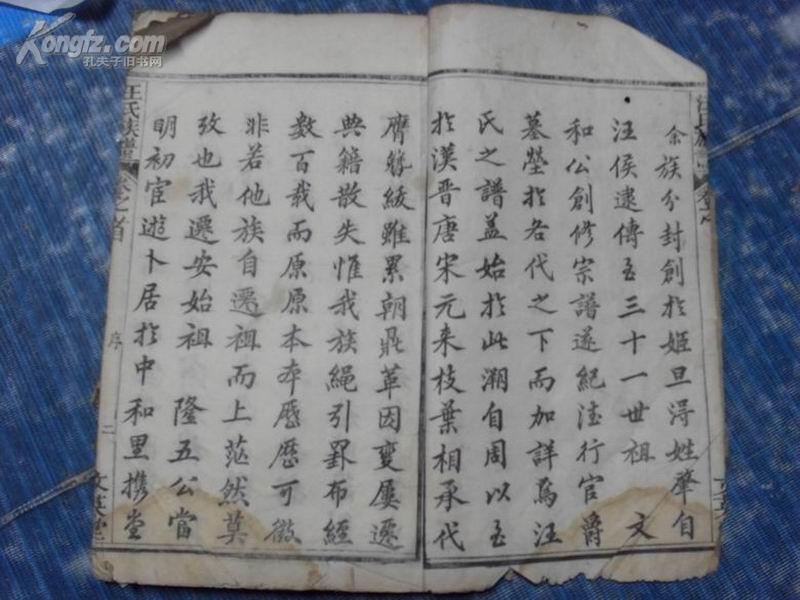 Kongfz.com
孔夫子旧书网
余族分封創於姬旦淂姓肇自
汪侯逮傳至三十一世祖 文
和公創修宗譜遂紀德行官爵
墓塋於各代之下而加詳焉汪
氏之譜蓋始於此溯自周以至
於漢晉唐宋元来枝葉相承代
膺簪綬雖累朝鼎革因變屢遷
典籍散失惟我族繩引羅布經
數百載而原原本本歷歷可徵
非若他族自遷祖而上茫然莫
攷也我遷安始祖 隆五公當
明初宦遊卜居於中和里携堂
汪氏族譜 卷之首 序 二 文英堂